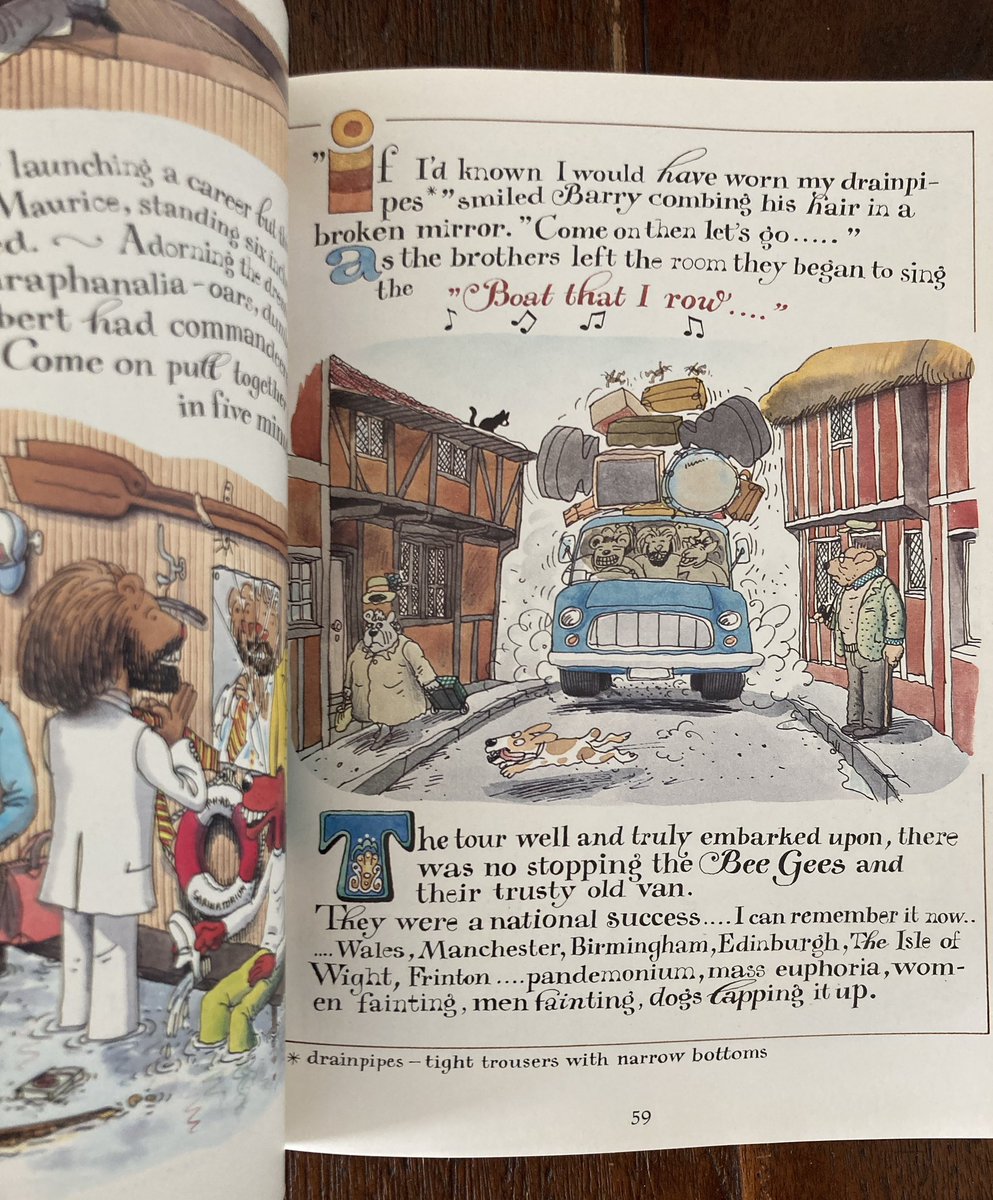 launching a career but
Maurice, standing six
Adorning the
oars,
had
Come on pull together
in five
"if I'd known I would have worn my drainpi-
pes*" smiled Barry combing his hair in a
broken mirror. "Come on then let's go....."
as the brothers left the room they began to sing
the "Boat that I row...."
The tour well and truly embarked upon, there
was no stopping the Bee Gees and
their trusty old van.
They were a national success....I can remember it now..
....Wales, Manchester, Birmingham, Edinburgh, The Isle of
Wight, Frinton ....pandemonium, mass euphoria, wom-
en fainting, men fainting, dogs lapping it up.
* drainpipes – tight trousers with narrow bottoms
59